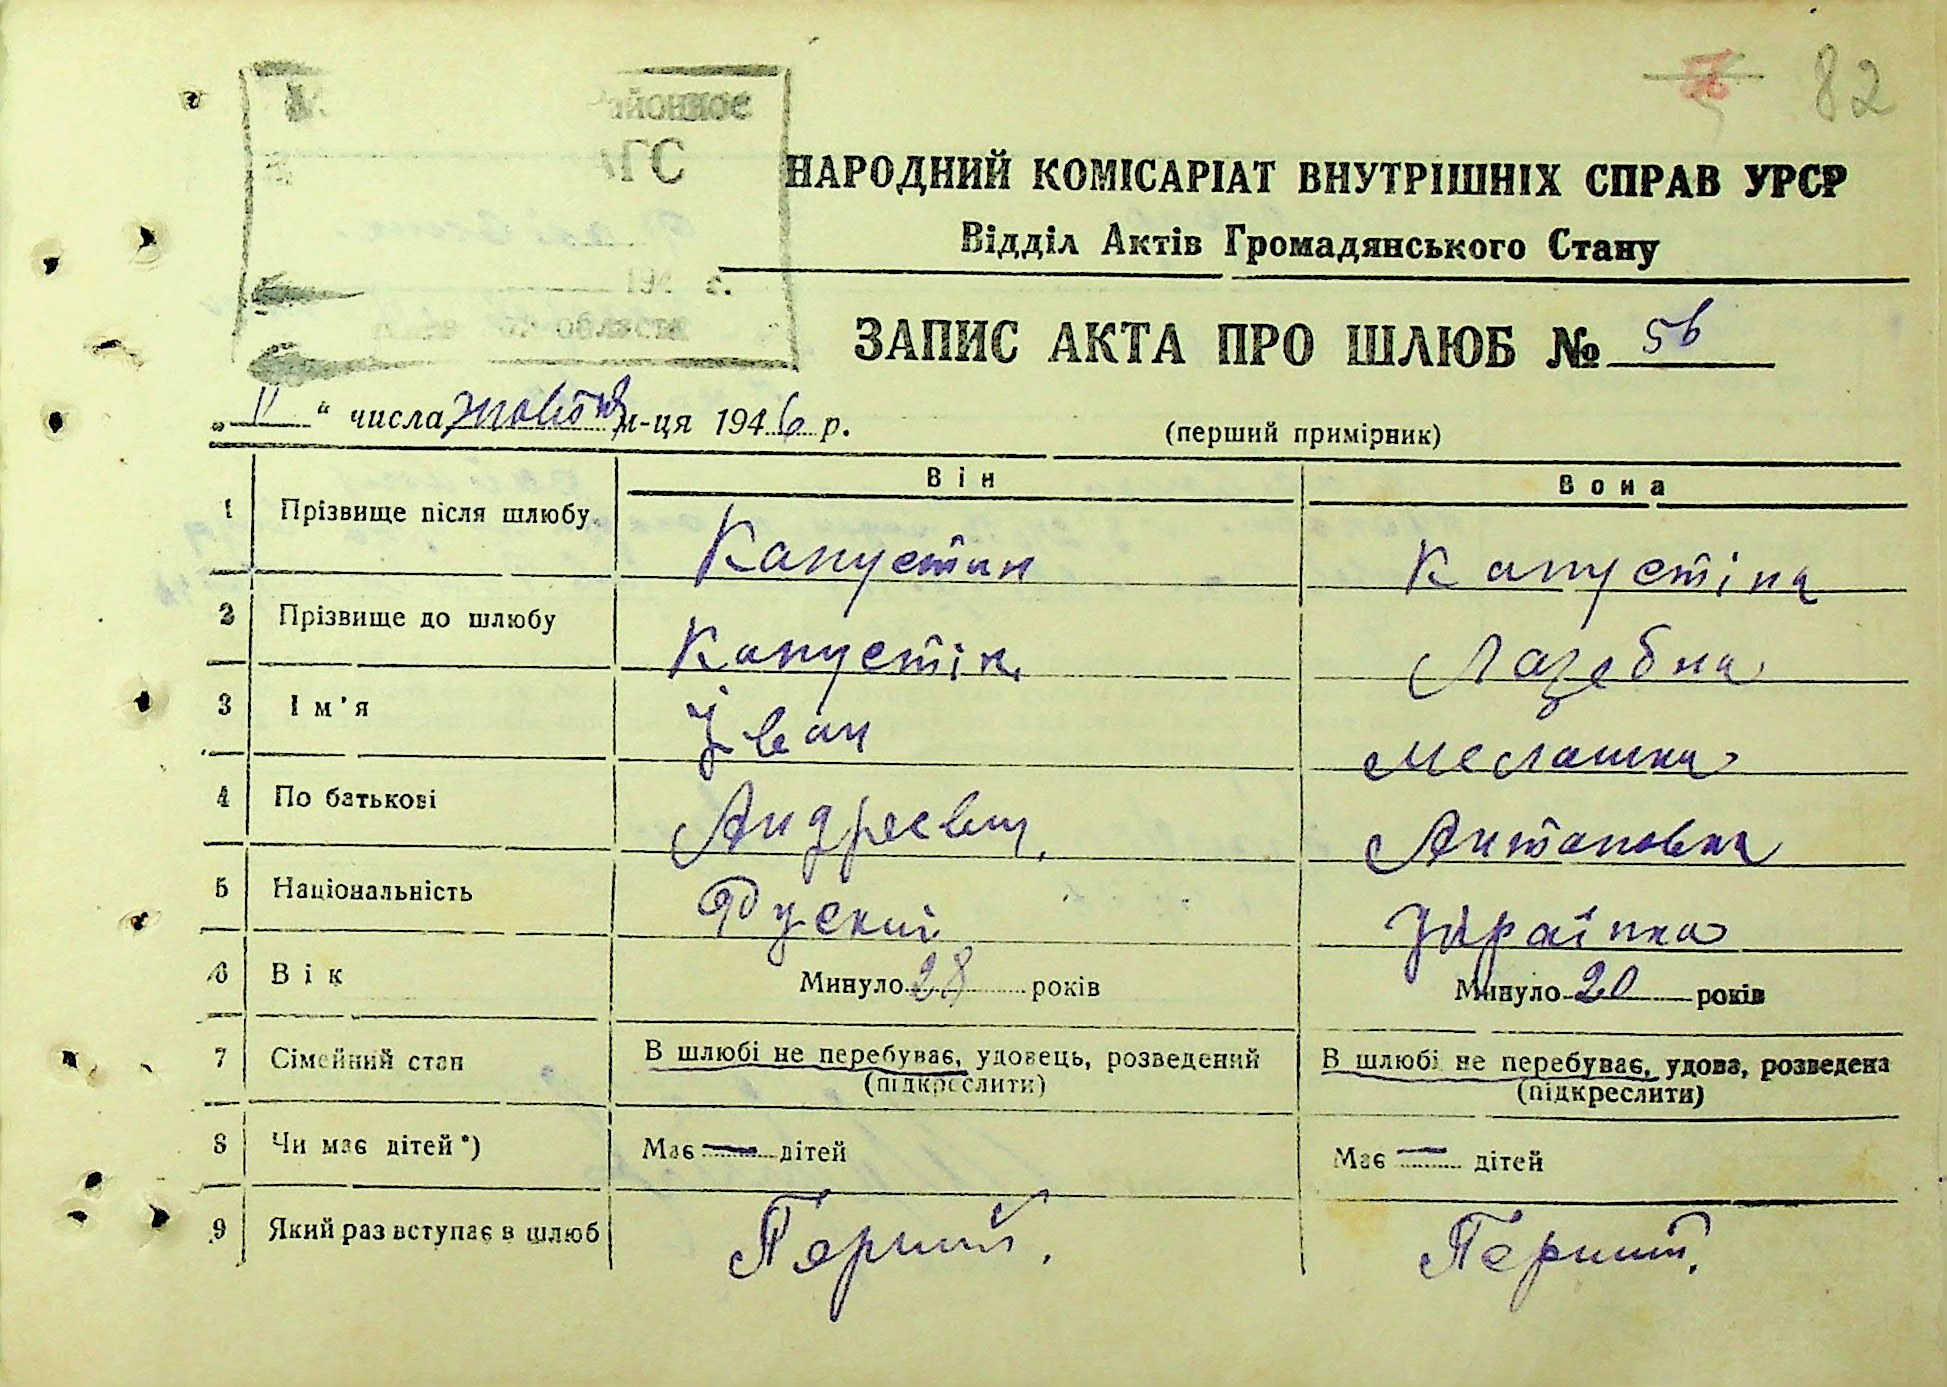 82
айонное
АГС
194 г.
области
НАРОДНИЙ КОМІСАРІАТ ВНУТРІШНІХ СПРАВ УРСР
Відділ Актів Громадянського Стану
ЗАПИС АКТА ПРО ШЛЮБ № 56
„ 11 “ числа жовтня м-ця 1946 р.
(перший примірник)
Він Вона
1 Прізвище після шлюбу Капустин Капустіна
2 Прізвище до шлюбу Капустін Лазебна
3 Ім'я Іван Мелашка
4 По батькові Андреевич Антановна
5 Національність Руский Украінка
6 Вік Минуло 28 років Минуло 20 років
7 Сімейний стан В шлюбі не перебуває, удовець, розведений В шлюбі не перебуває, удова, розведена
(підкреслити) (підкреслити)
8 Чи має дітей*) Має — дітей Має — дітей
9 Який раз вступає в шлюб Перший. Перший.